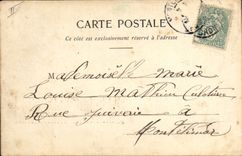 CARTE POSTALE
Ce côté est exclusivement réservé à l'adresse
Mademoiselle Marie
Louise Mathieu
Rue à
Montélimar